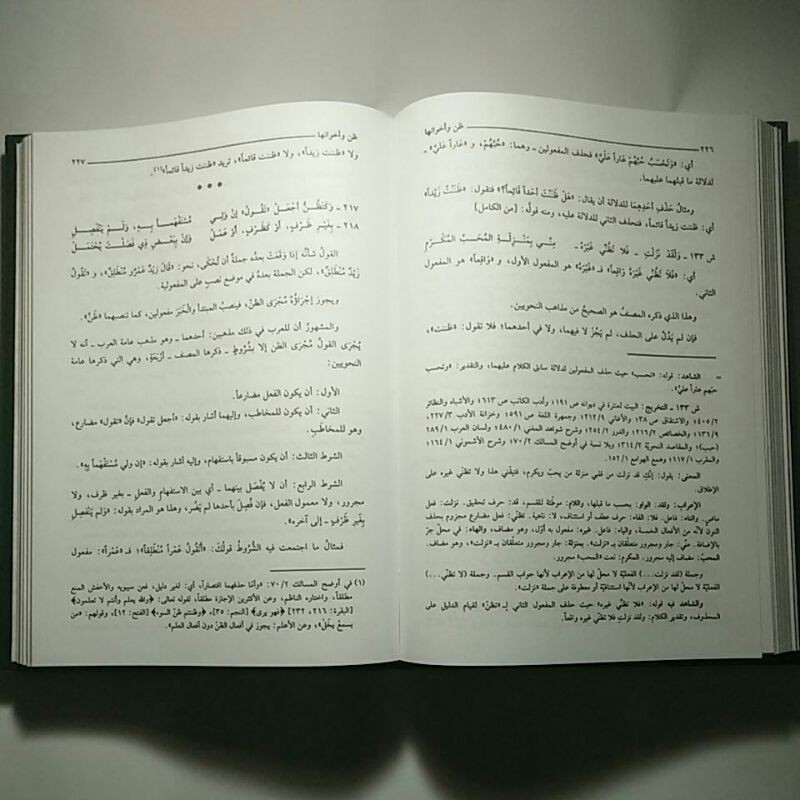 ٢٢٦ ظن وأخواتها
أي: «وَتَحْسَبُ حُبَّهُمْ عَاراً عَلَيَّ» فحذف المفعولين ـ وهما: «حُبَّهُمْ»، و «عَاراً عَلَيَّ» ـ
لدلالة ما قبلهما عليهما.
ومثالُ حَذْفِ أحَدِهِمَا للدلالة أن يقال: «هَلْ ظَنَنْتَ أحَداً قَائِماً؟» فتقول: «ظَنَنْتُ زَيْداً»
أي: ظننت زيداً قائماً، فتحذف الثاني للدلالة عليه، ومنه قولُه: [من الكامل]
ش ١٣٣ ـ وَلَقَدْ نَزَلْتِ ـ فَلَا تَظُنِّي غَيْرَهُ ـ مِنِّي بِمَنْزِلَةِ المُحَبِّ المُكْرَمِ
أي: «فَلَا تَظُنِّي غَيْرَهُ وَاقِعاً» فـ «غَيْرَهُ» هو المفعول الأول، و «وَاقِعاً» هو المفعول
الثاني.
وهذا الذي ذكره المصنفُ هو الصحيحُ من مذاهب النحويين.
فإن لم يَدُلَّ دليل على الحذف، لم يَجُزْ لا فيهما، ولا في أحدهما؛ فلا تقول: «ظننت»،
= الشاهد: قوله: «تحسب» حيث حذف المفعولين لدلالة سابق الكلام عليهما، والتقدير: «وتحسب
حبّهم عاراً عليَّ».
ش ١٣٣ ـ التخريج: البيت لعنترة في ديوانه ص ١٩١؛ وأدب الكاتب ص ٦١٣؛ والأشباه والنظائر
٤٠٥/٢؛ والاشتقاق ص ٣٨؛ والأغاني ٢١٢/٩؛ وجمهرة اللغة ص ٥٩١؛ وخزانة الأدب ٢٢٧/٣،
١٣٦/٩؛ والخصائص ٢١٦/٢؛ والدرر ٢٥٤/٢؛ وشرح شواهد المغني ٤٨٠/١؛ ولسان العرب ٢٨٩/١
(حبب)؛ والمقاصد النحويّة ٣١٤/٢؛ وبلا نسبة في أوضح المسالك ٧٠/٢؛ وشرح الأشموني ١٦٤/١؛
والمقرب ١١٧/١؛ وهمع الهوامع ١٥٢/١.
المعنى: يقول: إنّكِ قد نزلت من قلبي منزلة من يحبّ ويكرم، فتيقّني هذا ولا تظنّي غيره على
الإطلاق.
الإعراب: ولقد: الواو: بحسب ما قبلها، واللام: موطّئة للقسم، قد: حرف تحقيق. نزلت: فعل
ماضٍ. والتاء: فاعل. فلا: الفاء: حرف عطف أو استئناف، لا: ناهية. تظنّي: فعل مضارع مجزوم بحذف
النون لأنه من الأفعال الخمسة، والياء: فاعل. غيره: مفعول به أوّل، وهو مضاف، والهاء: في محلّ جرّ
بالإضافة. منّي: جار ومجرور متعلّقان بـ «نزلت». بمنزلة: جار ومجرور متعلّقان بـ «نزلت»، وهو مضاف.
المحبّ: مضاف إليه مجرور. المكرم: نعت «المحب» مجرور.
وجملة (لقد نزلت...) الفعليّة لا محلّ لها من الإعراب لأنها جواب القسم. وجملة (لا تظنّي...)
الفعليّة لا محلّ لها من الإعراب لأنها استئنافيّة أو معطوفة على جملة «نزلت».
والشاهد فيه قوله: «فلا تظنّي غيره» حيث حذف المفعول الثاني لـ «تظنّ» لقيام الدليل على
المحذوف، وتقدير الكلام: ولقد نزلتِ فلا تظنّي غيره واقعاً.
ظن وأخواتها ٢٢٧
ولا «ظننت زيداً»، ولا «ظننت قائماً»، تريد «ظننت زيداً قائماً»(١).
* * *
٢١٧ ـ وَكَتَظُنُّ اجْعَلْ «تَقُولُ» إنْ وَلِي مُسْتَفْهَماً بِهِ، وَلَمْ يَنْفَصِلِ
٢١٨ ـ بِغَيْرِ ظَرْفٍ، أوْ كَظَرْفٍ، أوْ عَمَلْ وَإنْ بِبَعْضِ ذِي فَصَلْتَ يُحْتَمَلْ
القولُ شأنُه إذا وَقَعَتْ بعدَه جملةٌ أن تُحْكَى، نحو: «قَالَ زَيْدٌ عَمْرٌو مُنْطَلِقٌ»، و «تَقُولُ
زَيْدٌ مُنْطَلِقٌ»، لكن الجملة بعده في موضع نصبٍ على المفعولية.
ويجوز إجْرَاؤُهُ مُجْرَى الظنِّ، فينصبُ المبتدأ والخَبَرَ مفعولين، كما تنصبهما «ظَنَّ».
والمشهورُ أن للعرب في ذلك مذهبين: أحدهما ـ وهو مذهب عامة العرب ـ أنه لا
يُجْرَى القولُ مُجْرَى الظن إلا بِشُرُوطٍ ـ ذكرها المصنف ـ أرْبَعَةٍ، وهي التي ذكرها عامة
النحويين:
الأول: أن يكون الفعل مضارعاً.
الثاني: أن يكون للمخاطب، وإليهما أشار بقوله: «اجعل تقول» فإنَّ «تقول» مضارع،
وهو للمخاطَبِ.
الشرط الثالث: أن يكون مسبوقاً باستفهام، وإليه أشار بقوله: «إن ولي مُسْتَفْهَماً بِهِ».
الشرط الرابع: أن لا يُفْصَلَ بينهما ـ أي بين الاستفهام والفعل ـ بغير ظرف، ولا
مجرور، ولا معمول الفعل، فإن فُصِلَ بأحدها لم يَضُر، وهذا هو المراد بقوله: «وَلم يَنْفَصِلِ
بِغَيْرِ ظَرْفٍ ـ إلى آخره».
فمثالُ ما اجتمعت فيه الشُّرُوطُ قولُكَ: «أتَقُولُ عَمْراً مُنْطَلِقاً»؛ فـ «عَمْراً»: مفعول
(١) في أوضح المسالك ٧٠/٢: «وأمّا حذفهما اقتصاراً، أي: لغير دليل، فعن سيبويه والأخفش المنع
مطلقاً، واختاره الناظم، وعن الأكثرين الإجازة مطلقاً، لقوله تعالى: ﴿والله يعلم وأنتم لا تعلمون﴾
[البقرة: ٢١٦، ٢٣٢] ﴿فهو يرى﴾ [النجم: ٣٥]، ﴿وظننتم ظنّ السوء﴾ [الفتح: ١٢]، وقولهم: «من
يسمعْ يخَلْ»، وعن الأعلم: يجوز في أفعال الظنّ دون أفعال العلم».